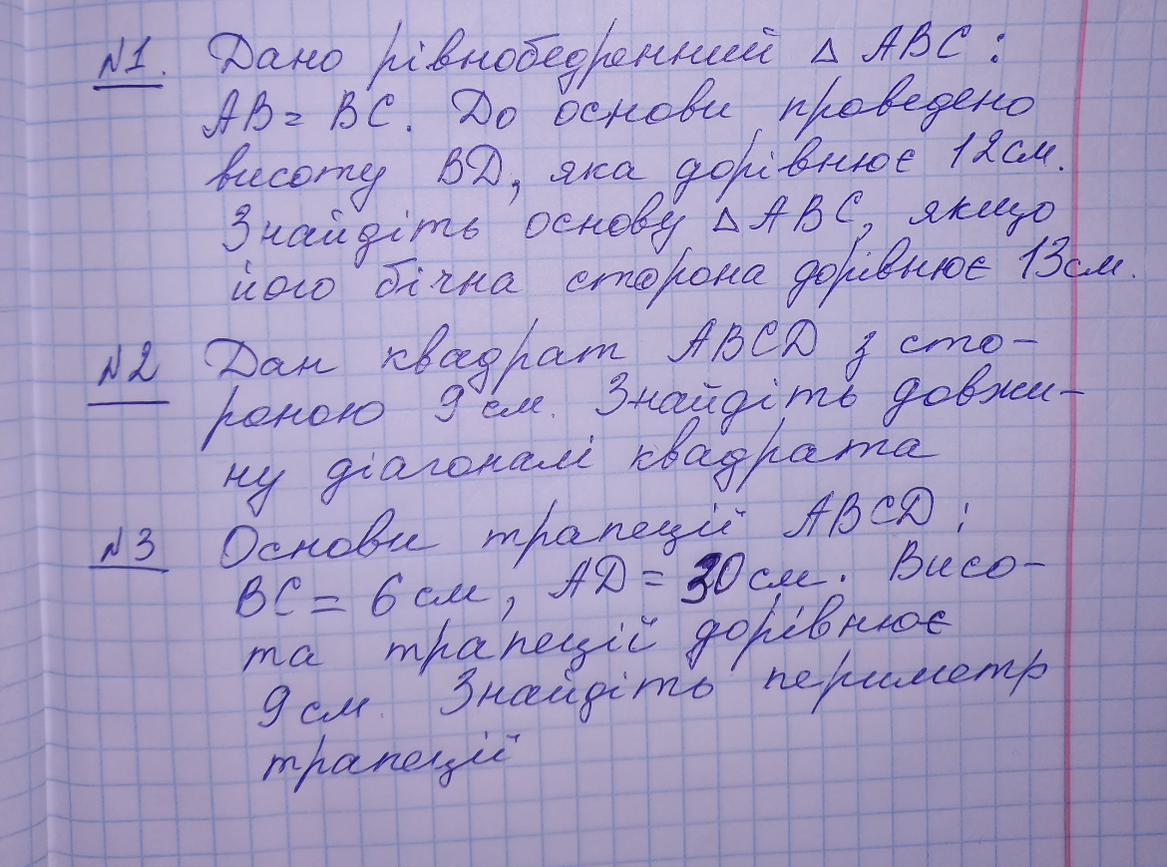 №1. Дано рівнобедренний △ ABC:
AB = BC. До основи проведено
висоту BD, яка дорівнює 12см.
Знайдіть основу △ ABC, якщо
його бічна сторона дорівнює 13см.
№2 Дан квадрат ABCD з сто-
роною 9 см. Знайдіть довжи-
ну діагоналі квадрата
№3 Основи трапеції ABCD:
BC = 6 см, AD = 30 см. Висо-
та трапеції дорівнює
9 см. Знайдіть периметр
трапеції